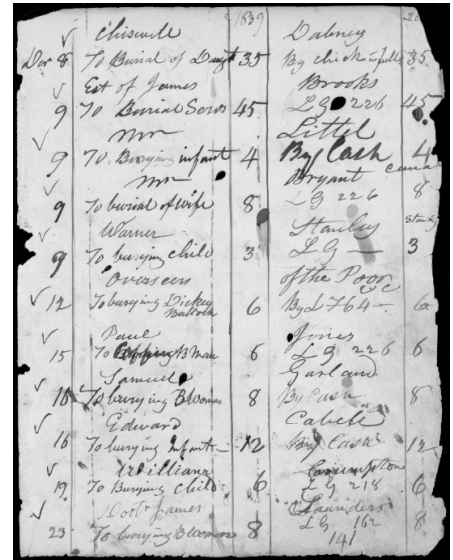 1839
Chiswell Dabney
Dec 8 To Burial of Daugt 35 By chick in full 35
Est of James Brooks
9 To Burial Servt 45 L G 226 45
Mr Littel
9 To Burying infant 4 By Cash 4
Mr Bryant
9 To burial of wife 8 L G 226 8
Warner Stanley
9 To burying child 3 L G — 3
Overseers of the Poor
12 To burying Dickey 6 By L 764 — 6
Paul Jones
15 To B Man 6 L G 226 6
Samuel Garland
16 To burying B Woman 8 By Cash 8
Edward Cabell
16 To burying Infant — 12 By Cash 12
William Crumpton
19 To Burying Child 6 L G 218 6
Doctr James Saunders
23 To burying B Woman 8 L G 162 8
141